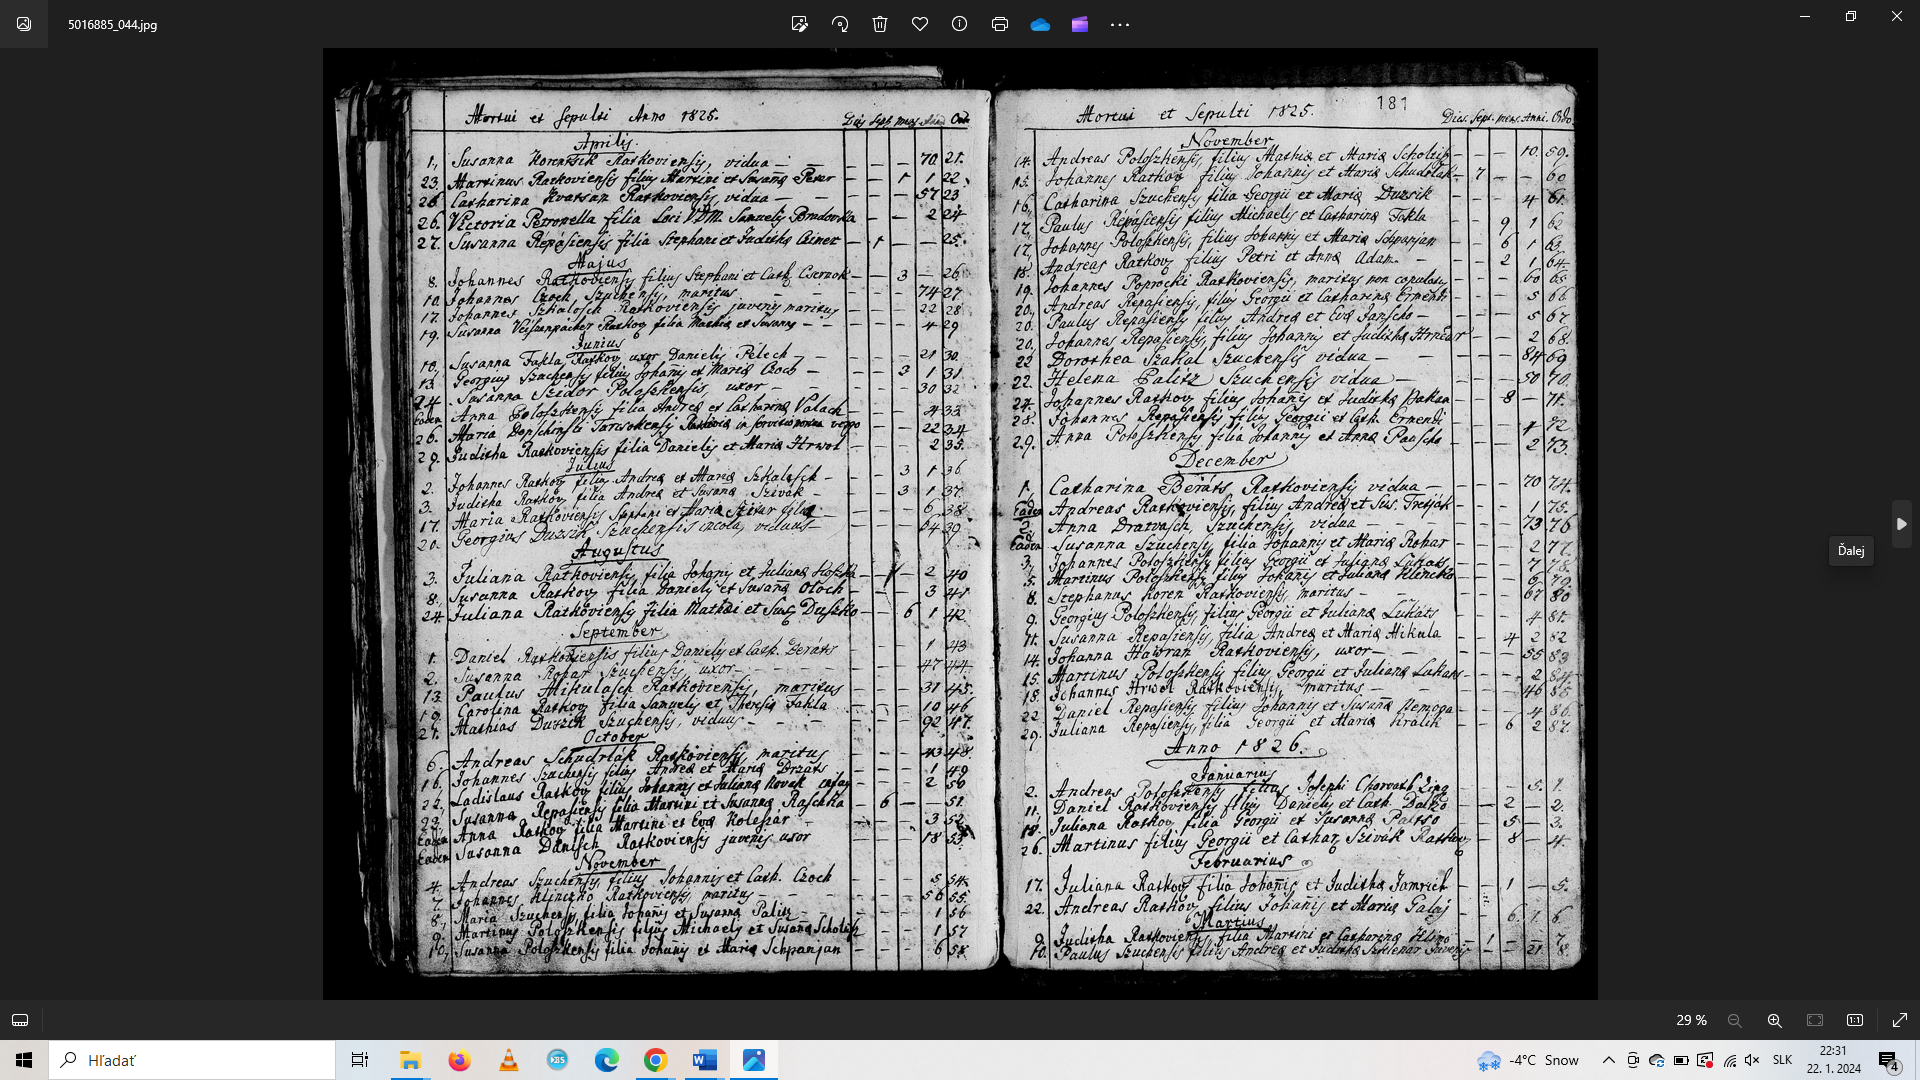 5016885_044.jpg
Mortui et Sepulti Anno 1825.
Dies Sept. mens. Anni Ordo
Aprilis.
1., Susanna Ratkoviensis, vidua — — — 70 21.
23. Martinus Ratkoviensis filius Martini et Susañæ Peter — — 1 1 22.
Catharina Kvartan Ratkoviensis, vidua — — 57 23
26. Victoria Petronella filia Loci V.D.M. Samuelis Bradovka — — — 2 24
27. Susanna Répásiensis filia Stephani et Judithæ — 1 — — 25.
Majus
8. Johannes Ratkoviensis filius Stephani et Cath. Csernok — — 3 — 26.
10. Johannes Czoch, Szuchensis, maritus — — 74 27.
17. Johannes Szkalosch Ratkoviensis juvenis maritus 22 28
19. Susanna Ratkov. filia Mathiæ et Susannæ — — 4 29
Junius
10. Susanna Fakla Ratkov. uxor Danielis Pelech — — 21 30.
13. Georgius Szuchensis filius Johañis et Mariæ Czoch — — 3 1 31
24. Susanna Szidor Poloszkensis, uxor — — 30 32
Eadem Anna Poloszkensis filia Andreæ et Catharinæ Valach 4 33
26. Maria 22 34
29. Juditha Ratkoviensis filia Danielis et Mariæ Hrwol 2 35.
Julius
2. Johannes Ratkov. filius Andreæ et Mariæ Szkalosch — 3 1 36
3. Juditha Ratkov. filia Andreæ et Susanæ Szivak — 3 1 37.
17. Maria Ratkoviensis filia 6 38
20. Georgius Duzsik Szuchensis incola, viduus 64 39
Augustus
3. Juliana Ratkoviensis, filia Johañis et Julianæ — — 2 40
8. Susanna Ratkov. filia Danielis et Susañæ Otoch — — — 3 41
24. Juliana Ratkoviensis filia Mathiæ et Sus. Duszko — — 6 1 42.
September
1. Daniel Ratkoviensis filius Danielis et Cath. Beráts — — 1 43
2. Susanna Rohar Szuchensis, uxor — — 47 44
13. Paulus Mikulasch Ratkoviensis, maritus — — — 31 45.
19. Carolina Ratkov. filia Samuelis et Theresiæ Fakla 10 46
27. Mathias Duzsik Szuchensis, viduus — — — 92 47.
October
6. Andreas Schudrlák Ratkoviensis, maritus — — — 43 48.
16. Johannes Szuchensis filius Andreæ et Mariæ Drzáts — — — 1 49
22. Ladislaus Ratkov. filius Johannis et Julianæ Novak — — 2 50
Susanna Repásiensis filia Martini et Susannæ Raschka — 6 — — 51.
Eadem Anna Ratkov. filia Martini et Evæ Koleszár — — — 3 52
Eadem Susanna Danisch Ratkoviensis juvenis uxor 18 53
November
4. Andreas Szuchensis, filius Johannis et Cath. Czoch — — — 5 54.
7. Johannes Klinczko Ratkoviensis, maritus — — 56 55.
8. Maria Szuchensis, filia Johañis et Susannæ Palitz — — — 1 56
9. Martinus Poloszkensis filius Michaelis et Susañæ — — — 1 57
10. Susanna Poloszkensis filia Johañis et Mariæ Schpanjan — — — 6 58.
181
Mortui et Sepulti 1825.
Dies. Sept. mens. Anni. Ordo.
November
14. Andreas Poloszkensis, filius Mathiæ et Mariæ — — — 10. 59.
15. Johannes Ratkov. filius Johannis et Mariæ Schudrlak — 7 — — 60
16. Catharina Szuchensis filia Georgii et Mariæ Duzsik — — — 4 61.
17. Paulus Répasiensis filius Michaelis et Catharinæ Fakla — — 9 1 62
17. Johannes Poloszkensis, filius Johannis et Mariæ Schpanjan — — 6 1 63.
18. Andreas Ratkov. filius Petri et Annæ Adam — — — 2 1 64.
19. Johannes Poprocki Ratkoviensis, maritus non copulatus — — — 60 65
20. Andreas Repasiensis, filius Georgii et Catharinæ Ermendi — — — 5 66
20. Paulus Repasiensis filius Andreæ et Evæ Janscho — — — 5 67
20. Johannes Repasiensis, filius Johannis et Judithæ Hrnčiar — — — 2 68.
22 Dorothea Szakal Szuchensis vidua — — — 84 69
22. Helena Palitz Szuchensis vidua — — — 50 70.
24. Johannes Ratkov. filius Johañis et Judithæ — — 8 — 71.
28. Johannes Repasiensis, filius Georgii et Cath. Ermendi — — — 4 72
29. Anna Poloszkensis filia Johannis et Annæ — — — 2 73.
December
1. Catharina Beráts Ratkoviensis vidua — — — 70 74.
Eadem Andreas Ratkoviensis, filius Andreæ et Sus. Tretjak — — — 1 75.
2. Anna Dratvasch Szuchensis, vidua — — — 73 76
Eadem Susanna Szuchensis, filia Johannis et Mariæ Rohar — — — 2 77.
3. Johannes Poloszkensis filius Georgii et Julianæ Lukats — — — 7 78.
5. Martinus Poloszkensis, filius Johañis et Julianæ Klencsko — — — 6 79.
8. Stephanus Koren Ratkoviensis, maritus — — — 67 80
9. Georgius Poloszkensis, filius Georgii et Julianæ Lukáts — — — 4 81.
11. Susanna Repasiensis, filia Andreæ et Mariæ Mikula — — 4 2 82
14. Johanna Hawran Ratkoviensis, uxor — — — 55 83
15. Martinus Poloszkensis filius Georgii et Julianæ Lukats — — — 2 84
18. Johannes Hrwol Ratkoviensis, maritus — — — 46 85
22. Daniel Repasiensis, filius Johannis et Susañæ Nemoga — — — 4 86.
29. Juliana Repasiensis, filia Georgii et Mariæ Kralik — — 6 2 87.
Anno 1826.
Januarius
2. Andreas Poloszkensis filius Josephi Chorvath Zing. — — — 5. 1.
11. Daniel Ratkoviensis filius Danielis et Cath. — — 2 — 2.
18. Juliana Ratkov. filia Georgii et Susannæ — — 5 — 3.
26. Martinus filius Georgii et Cathar. Szivak Ratkov. — — 8 — 4.
Februarius
17. Juliana Ratkov. filia Johañis et Judithæ Jamrich — — 1 — 5.
22. Andreas Ratkov. filius Johañis et Mariæ Galaj — — 6. 1. 6.
Martius
9. Juditha Ratkoviensis, filia Martini et Catharinæ — 1 — — 7.
10. Paulus Szuchensis filius Andreæ et Judithæ — — — 21. 8.
Ďalej
29 %
Hľadať
-4°C Snow
SLK
22:31
22. 1. 2024
4